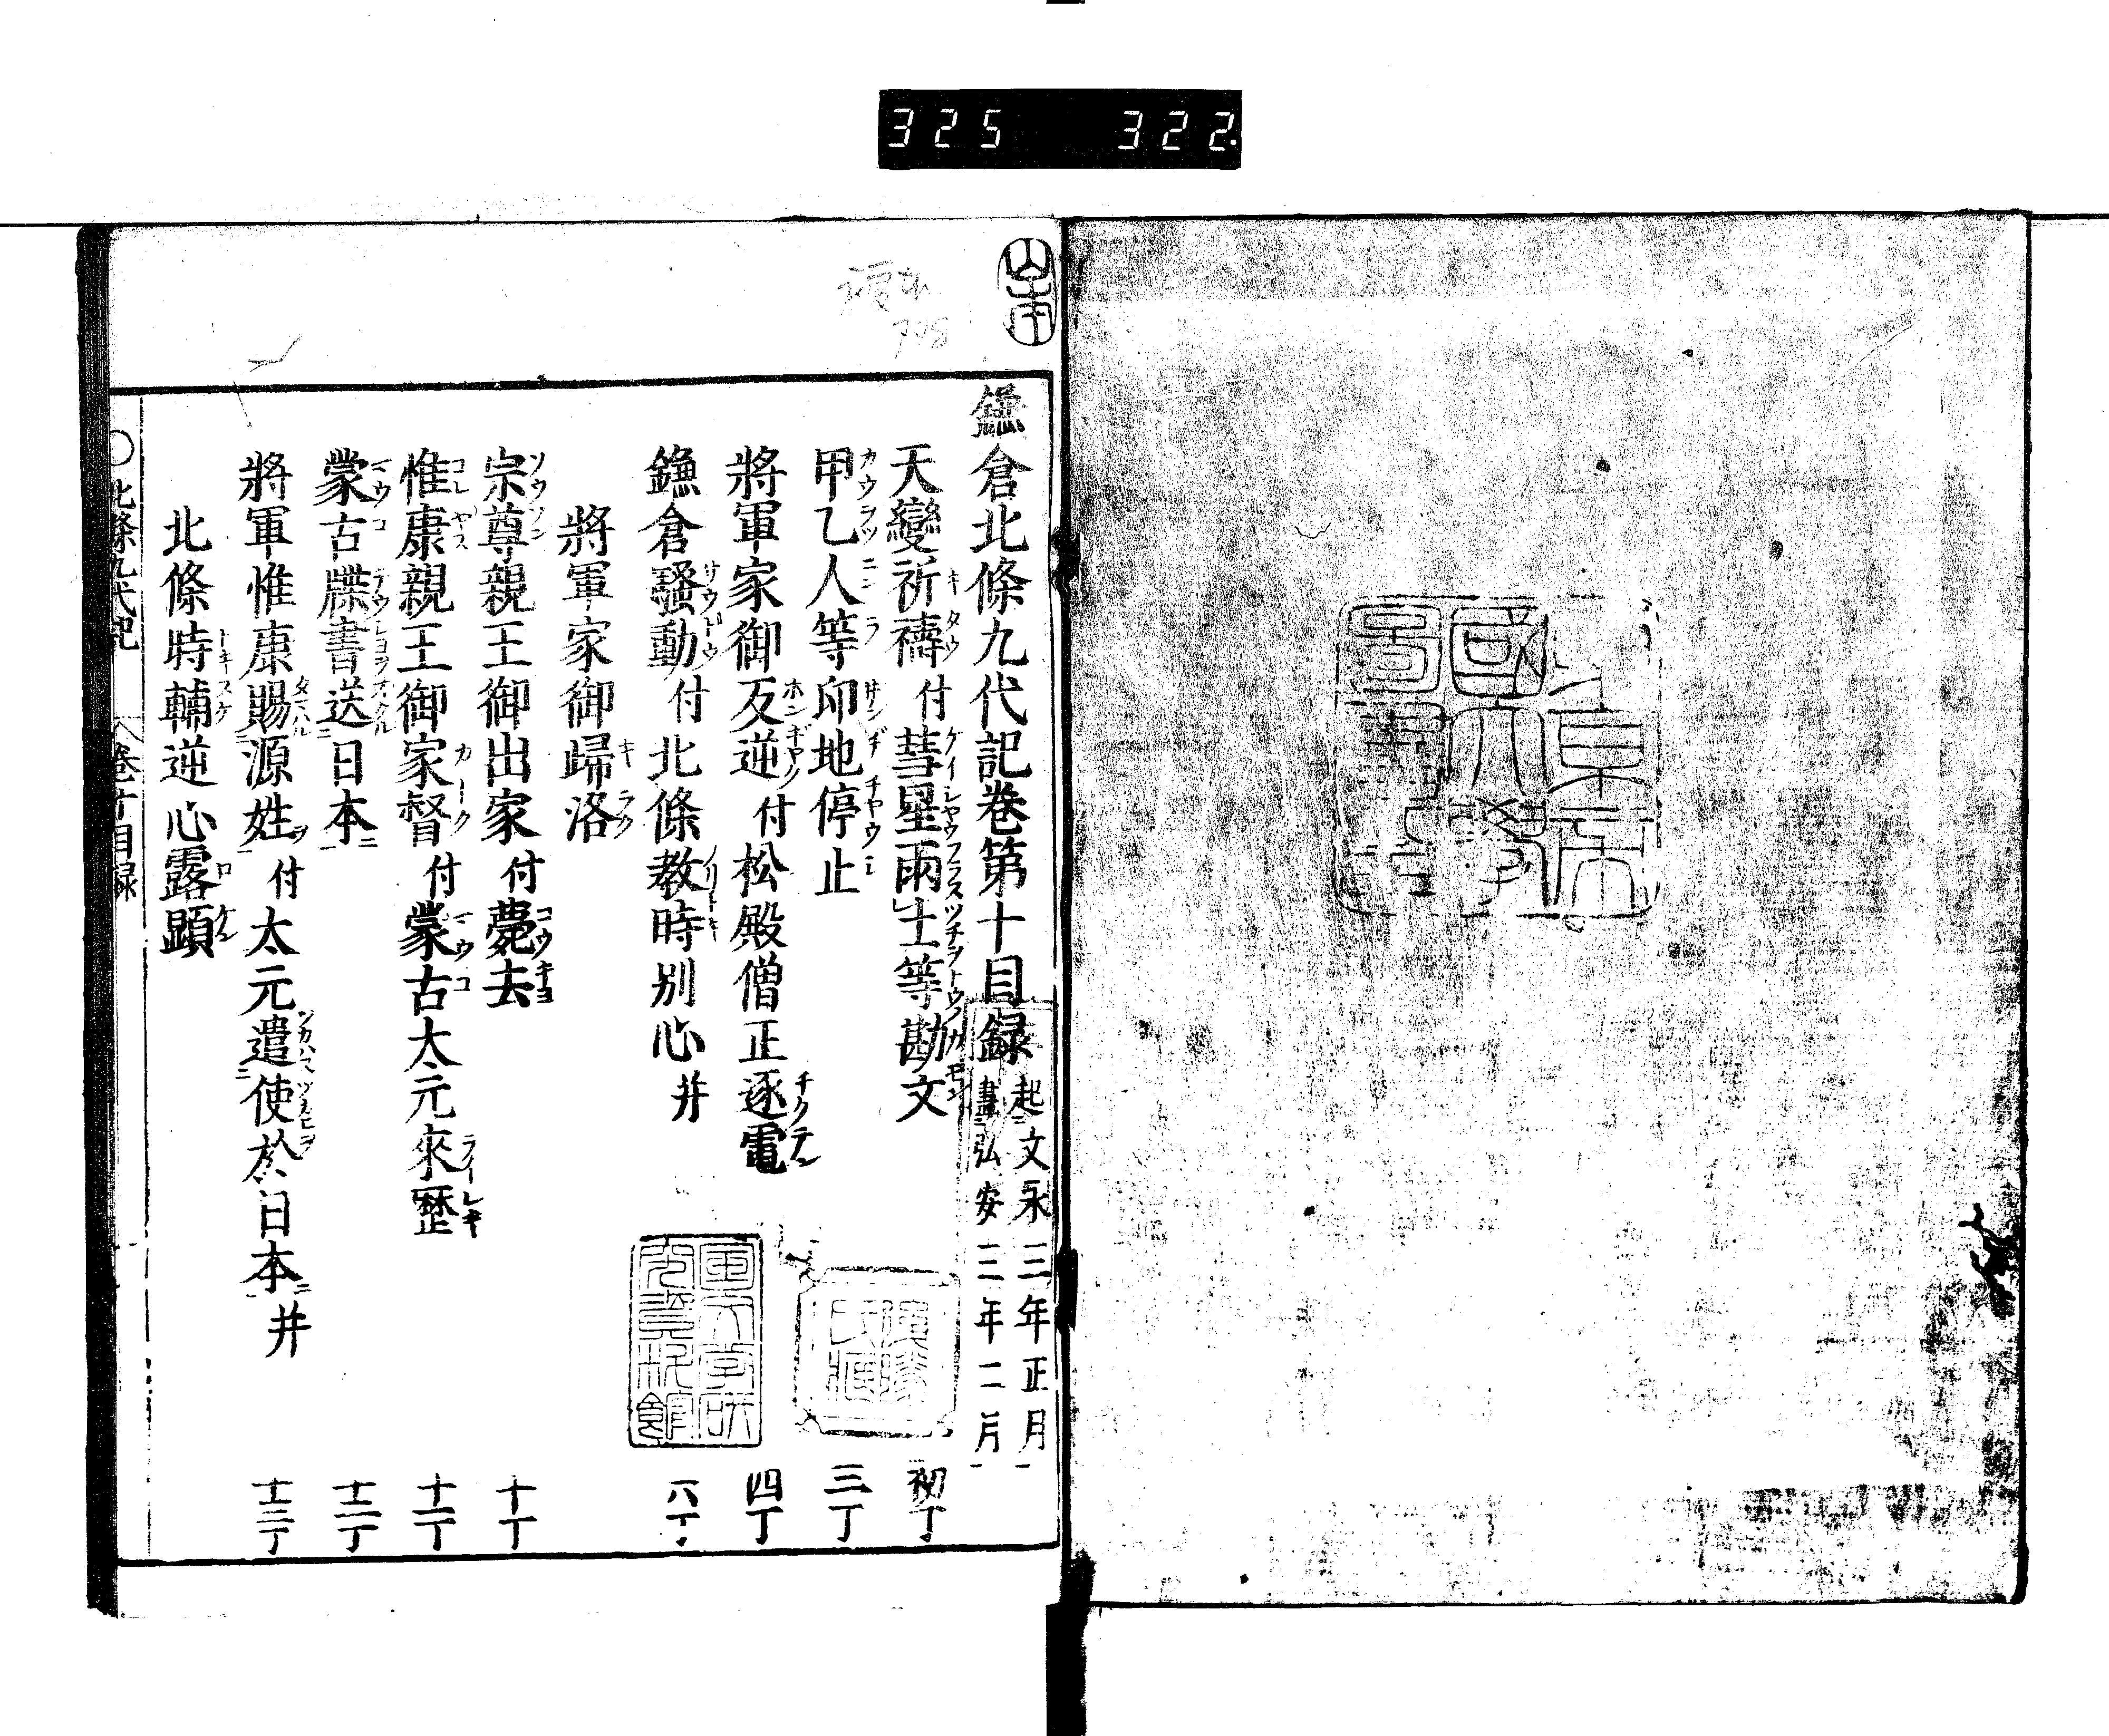 325 322
鎌倉北條九代記卷第十目録 起文永三年正月 盡弘安三年二月
天變祈禱付彗星雨土等勘文 初丁
甲乙人等印地停止 三丁
將軍家御反逆付松殿僧正逐電 四丁
鎌倉騷動付北條教時別心并 八丁
將軍家御歸洛
宗尊親王御出家付薨去 十丁
惟康親王御家督付蒙古太元來歷 十一丁
蒙古牒書送日本 十二丁
將軍惟康賜源姓付太元遣使於日本并 十三丁
北條時輔逆心露顯
北條九代記 卷十目録